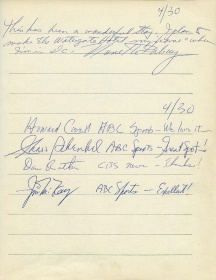 4/30
This has been a wonderful stay. I plan to
make the Watergate Hotel my "home" when
4/30
Howard Cosell ABC Sports - We love it -
Chris Schenkel ABC Sports - Great spot!
Dan Rather CBS News - Thanks!
Jim McKay ABC Sports - Excellent!